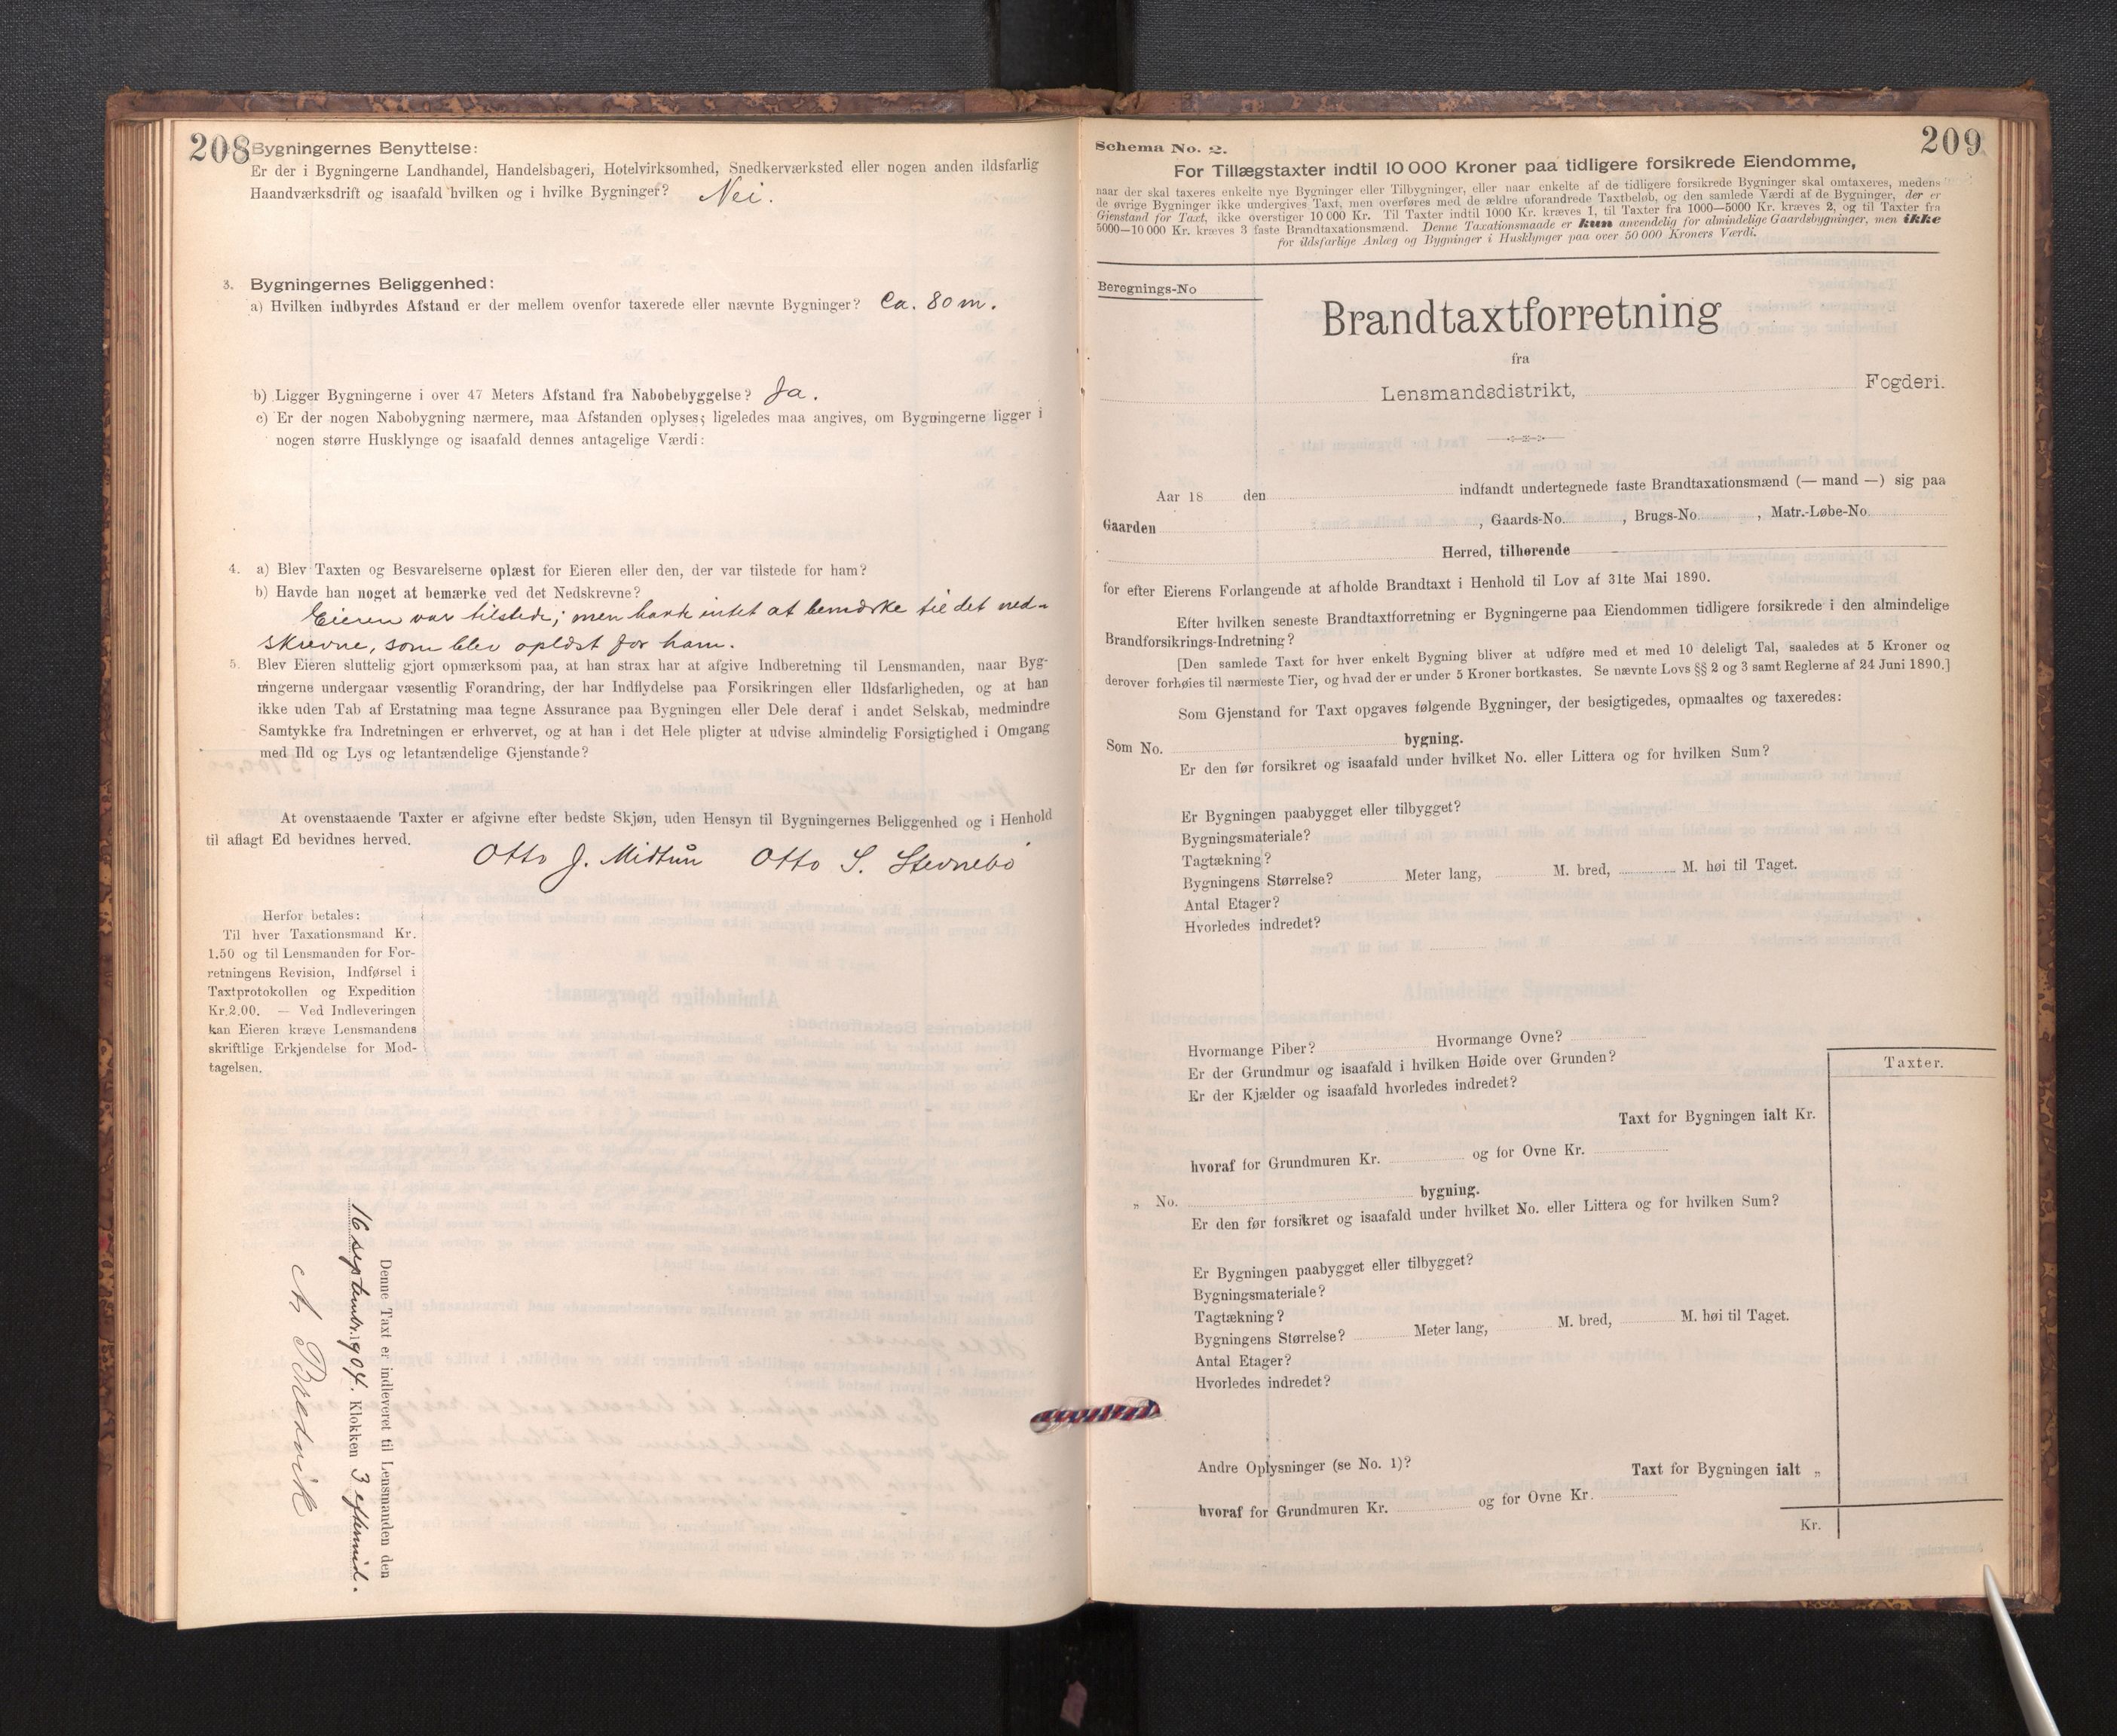 208
Bygningernes Benyttelse:
Er der i Bygningerne Landhandel, Handelsbageri, Hotelvirksomhed, Snedkerværksted eller nogen anden ildsfarlig
Haandværksdrift og isaafald hvilken og i hvilke Bygninger? Nei.
3. Bygningernes Beliggenhed:
a) Hvilken indbyrdes Afstand er der mellem ovenfor taxerede eller nævnte Bygninger? Ca. 80 m.
b) Ligger Bygningerne i over 47 Meters Afstand fra Nabobebyggelse? Ja.
c) Er der nogen Nabobygning nærmere, maa Afstanden oplyses; ligeledes maa angives, om Bygningerne ligger i
nogen større Husklynge og isaafald dennes antagelige Værdi:
4. a) Blev Taxten og Besvarelserne oplæst for Eieren eller den, der var tilstede for ham?
b) Havde han noget at bemærke ved det Nedskrevne?
Eieren var tilstede; men havde intet at bemærke til det ned-
skrevne, som blev oplæst for ham.
5. Blev Eieren sluttelig gjort opmærksom paa, at han strax har at afgive Indberetning til Lensmanden, naar Byg-
ningerne undergaar væsentlig Forandring, der har Indflydelse paa Forsikringen eller Ildsfarligheden, og at han
ikke uden Tab af Erstatning maa tegne Assurance paa Bygningen eller Dele deraf i andet Selskab, medmindre
Samtykke fra Indretningen er erhvervet, og at han i det Hele pligter at udvise almindelig Forsigtighed i Omgang
med Ild og Lys og letantændelige Gjenstande?
At ovenstaaende Taxter er afgivne efter bedste Skjøn, uden Hensyn til Bygningernes Beliggenhed og i Henhold
til aflagt Ed bevidnes herved.
Otto J. Midtun Otto S. Stevnebø
Herfor betales:
Til hver Taxationsmand Kr.
1.50 og til Lensmanden for For-
retningens Revision, Indførsel i
Taxtprotokollen og Expedition
Kr. 2.00. — Ved Indleveringen
kan Eieren kræve Lensmandens
skriftlige Erkjendelse for Mod-
tagelsen.
Denne Taxt er indleveret til Lensmanden den
16 september 1904. Klokken 3 eftermid.
A Bredvik
209
Schema No. 2.
For Tillægstaxter indtil 10 000 Kroner paa tidligere forsikrede Eiendomme,
naar der skal taxeres enkelte nye Bygninger eller Tilbygninger, eller naar enkelte af de tidligere forsikrede Bygninger skal omtaxeres, medens
de øvrige Bygninger ikke undergives Taxt, men overføres med de ældre uforandrede Taxtbeløb, og den samlede Værdi af de Bygninger, der er
Gjenstand for Taxt, ikke overstiger 10 000 Kr. Til Taxter indtil 1000 Kr. kræves 1, til Taxter fra 1000—5000 Kr. kræves 2, og til Taxter fra
5000—10 000 Kr. kræves 3 faste Brandtaxationsmænd. Denne Taxationsmaade er kun anvendelig for almindelige Gaardsbygninger, men ikke
for ildsfarlige Anlæg og Bygninger i Husklynger paa over 50 000 Kroners Værdi.
Beregnings-No
Brandtaxtforretning
fra
Lensmandsdistrikt, Fogderi.
Aar 18 den indfandt undertegnede faste Brandtaxationsmænd (— mand —) sig paa
Gaarden , Gaards-No. , Brugs-No. , Matr.-Løbe-No.
Herred, tilhørende
for efter Eierens Forlangende at afholde Brandtaxt i Henhold til Lov af 31te Mai 1890.
Efter hvilken seneste Brandtaxtforretning er Bygningerne paa Eiendommen tidligere forsikrede i den almindelige
Brandforsikrings-Indretning?
[Den samlede Taxt for hver enkelt Bygning bliver at udføre med et med 10 deleligt Tal, saaledes at 5 Kroner og
derover forhøies til nærmeste Tier, og hvad der er under 5 Kroner bortkastes. Se nævnte Lovs §§ 2 og 3 samt Reglerne af 24 Juni 1890.]
Som Gjenstand for Taxt opgaves følgende Bygninger, der besigtigedes, opmaaltes og taxeredes:
Som No. bygning.
Er den før forsikret og isaafald under hvilket No. eller Littera og for hvilken Sum?
Er Bygningen paabygget eller tilbygget?
Bygningsmateriale?
Tagtækning?
Bygningens Størrelse? Meter lang, M. bred, M. høi til Taget.
Antal Etager?
Hvorledes indredet?
Hvormange Piber? Hvormange Ovne?
Er der Grundmur og isaafald i hvilken Høide over Grunden?
Er der Kjælder og isaafald hvorledes indredet?
Taxter.
Taxt for Bygningen ialt Kr.
hvoraf for Grundmuren Kr. og for Ovne Kr.
„ No. bygning.
Er den før forsikret og isaafald under hvilket No. eller Littera og for hvilken Sum?
Er Bygningen paabygget eller tilbygget?
Bygningsmateriale?
Tagtækning?
Bygningens Størrelse? Meter lang, M. bred, M. høi til Taget.
Antal Etager?
Hvorledes indredet?
Andre Oplysninger (se No. 1)? Taxt for Bygningen ialt „
hvoraf for Grundmuren Kr. og for Ovne Kr.
Kr.